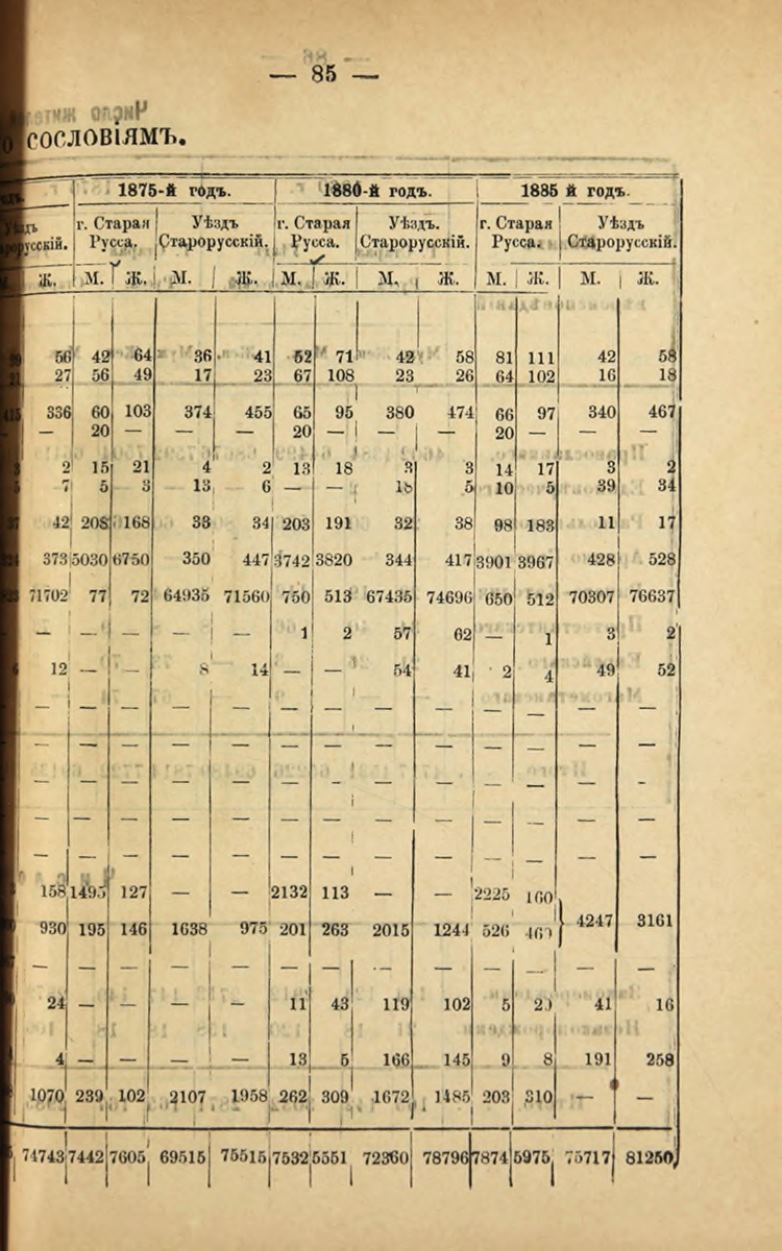 — 85 —
сословіямъ.
1875-й годъ. 1880-й годъ. 1885 й годъ.
г. Старая Уѣздъ г. Старая Уѣздъ. г. Старая Уѣздъ
Русса. Старорусскій. Русса. Старорусскій. Русса. Старорусскій.
Ж. М. Ж. М. Ж. М. Ж. М. Ж. М. Ж. М. Ж.
56 42 64 36 41 52 71 42 58 81 111 42 58
27 56 49 17 23 67 108 23 26 64 102 16 18
336 60 103 374 455 65 95 380 474 66 97 340 467
— — 20 — — — 20 — — — 20 — — —
2 15 21 4 2 13 18 3 3 14 17 3 2
7 5 3 13 6 — — 18 5 10 5 39 34
42 208 168 33 34 203 191 32 38 98 183 11 17
373 5030 6750 350 447 3742 3820 344 417 3901 3967 428 528
71702 77 72 64935 71560 750 513 67435 74696 650 512 70307 76637
— — — — — 1 2 57 62 — 1 3 2
12 — — 8 14 — — 54 41 2 4 49 52
— — — — — — — — — — — — —
— — — — — — — — — — — — —
— — — — — — — — — — — — —
— — — — — — — — — — — — —
— — — — — — — — — — — — —
158 1495 127 — — 2132 113 — — 2225 160
930 195 146 1638 975 201 263 2015 1244 526 } 4247 3161
— — — — — — — — — — — — —
24 — — — — 11 43 119 102 5 41 16
4 — — — — 13 5 166 145 9 8 191 258
1070 239 102 2107 1958 262 309 1672 1485 203 310 — —
74743 7442 7605 69515 75515 7532 5551 72360 78796 7874 5975 75717 81250